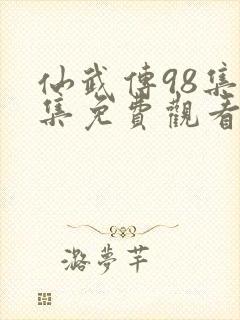 仙武傳98集
集免費觀看
潞夢芊